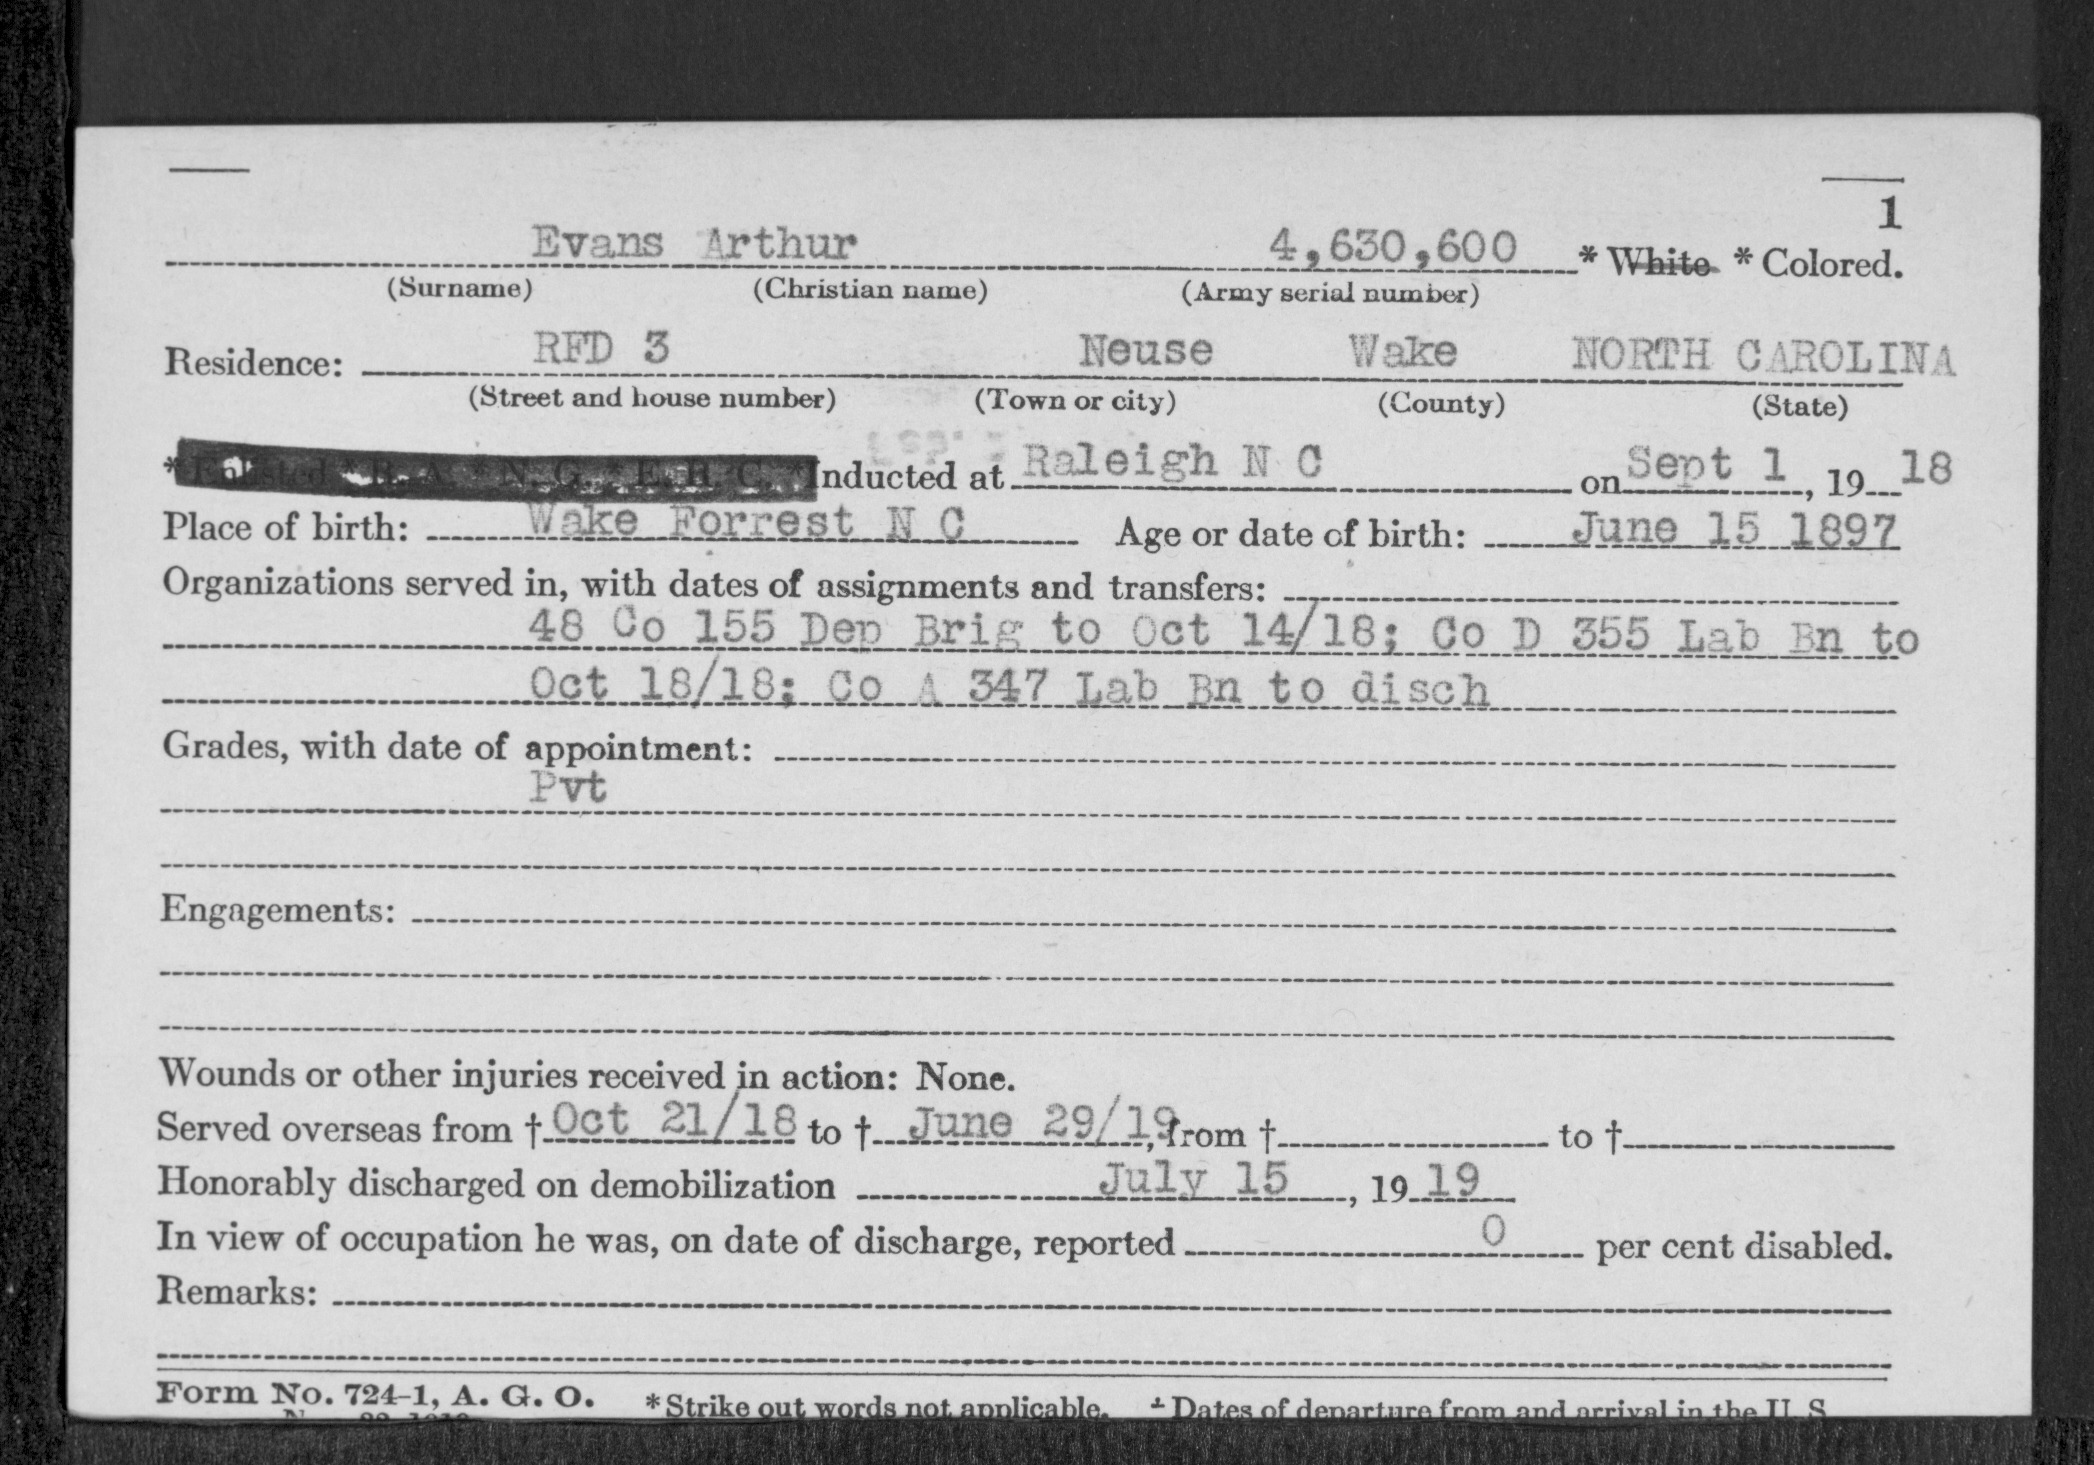 1
Evans Arthur 4,630,600 * White * Colored.
(Surname) (Christian name) (Army serial number)
Residence: RFD 3 Neuse Wake NORTH CAROLINA
(Street and house number) (Town or city) (County) (State)
* Enlisted * R. A. * N. G. * E. R. C. * Inducted at Raleigh N C on Sept 1, 19 18
Place of birth: Wake Forrest N C Age or date of birth: June 15 1897
Organizations served in, with dates of assignments and transfers:
48 Co 155 Dep Brig to Oct 14/18; Co D 355 Lab Bn to
Oct 18/18; Co A 347 Lab Bn to disch
Grades, with date of appointment:
Pvt
Engagements:
Wounds or other injuries received in action: None.
Served overseas from † Oct 21/18 to † June 29/19, from † to †
Honorably discharged on demobilization July 15, 19 19
In view of occupation he was, on date of discharge, reported 0 per cent disabled.
Remarks:
Form No. 724-1, A. G. O. * Strike out words not applicable. † Dates of departure from and arrival in the U. S.